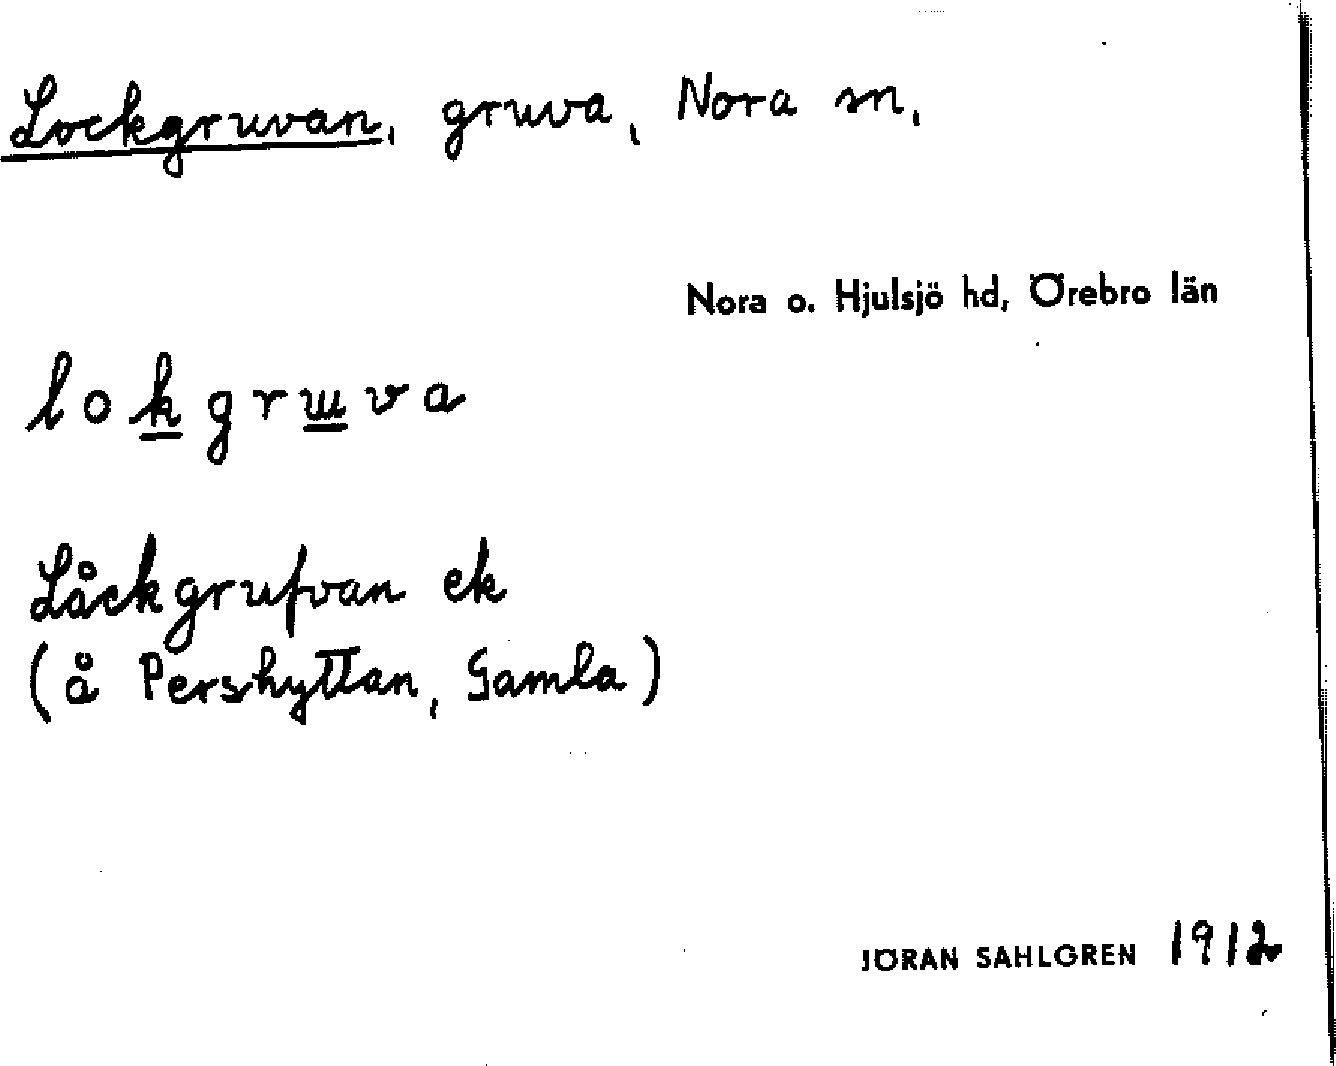 Lockgruvan, gruva, Nora sn,
Nora o. Hjulsjö hd, Örebro län
lokgruva
Låckgrufvan ek
(å Pershyttan, Gamla)
JÖRAN SAHLGREN 1912